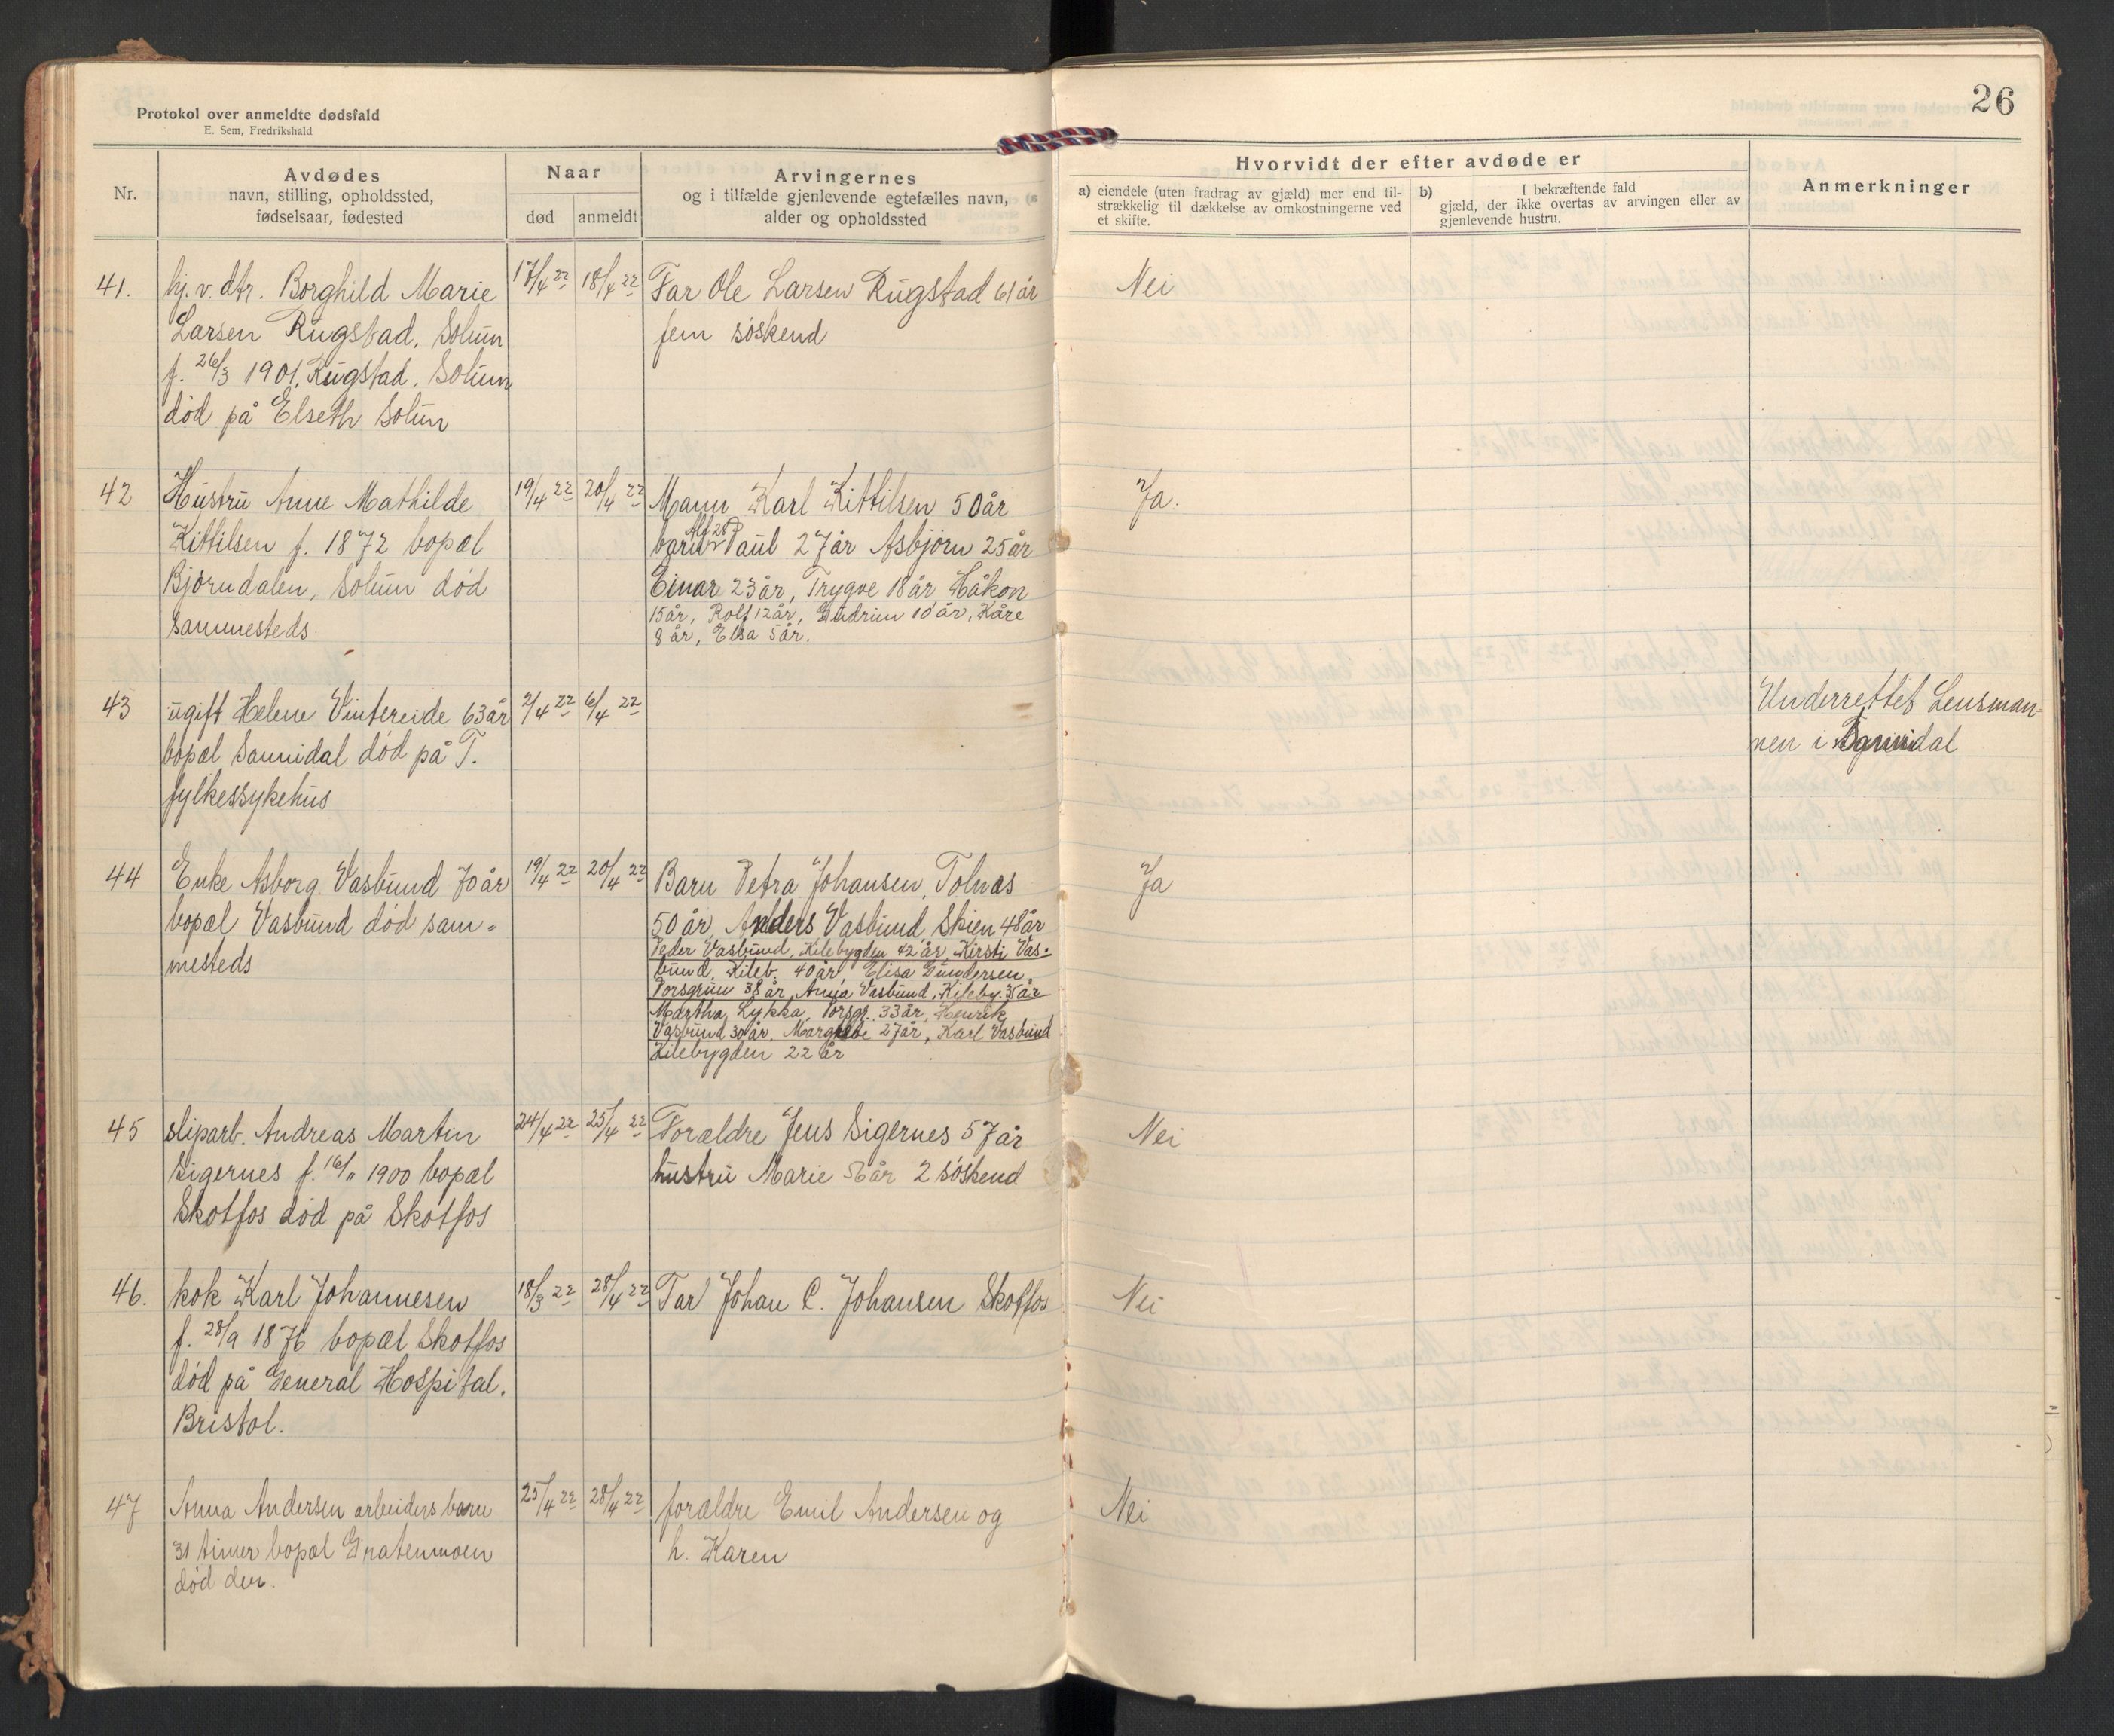 Protokol over anmeldte dødsfald
E. Sem, Fredrikshald
26
Nr.
Avdødes
navn, stilling, opholdssted,
fødselsaar, fødested
Naar
død
anmeldt
Arvingernes
og i tilfælde gjenlevende egtefælles navn,
alder og opholdssted
Hvorvidt der efter avdøde er
a) eiendele (uten fradrag av gjæld) mer end til-
strækkelig til dækkelse av omkostningerne ved
et skifte.
b) I bekræftende fald
gjæld, der ikke overtas av arvingen eller av
gjenlevende hustru.
Anmerkninger
41. hj. v. dtr. Borghild Marie 17/4 22 18/4 22 Far Ole Larsen Rugstad 61 år Nei
Larsen Rugstad, Solum fem søskend
f. 26/3 1901, Rugstad, Solum
død på Elseth Solum
42 Hustru Anne Mathilde 19/4 22 20/4 22 Mann Karl Kittilsen 50 år Ja.
Alf 28
Kittilsen f. 1872 bopæl barn Paul 27 år Asbjørn 25 år
Bjørndalen, Solum død Einar 23 år, Trygve 18 år Håkon
sammesteds. 15 år, Rolf 12 år, Gudrun 10 år, Kåre
8 år, Elsa 5 år.
43 ugift Helene Vintereide 63 år 2/4 22 6/4 22 Underrettet Lensman-
bopæl Sannidal død på T. nen i Sannidal
fylkessykehus
44 Enke Asborg Vasbund 70 år 19/4 22 20/4 22 Barn Petra Johansen, Tolnæs Ja
bopæl Vasbund død sam- 50 år, Anders Vasbund, Skien 48 år
mesteds Peder Vasbund, Kilebygden 42 år, Kirsti Vas-
bund, Kileb. 40 år, Elisa Gundersen
Porsgrun 38 år, Anna Vasbund, Kileby. 35 år
Martha Lykka, Porsgr. 33 år, Henrik
Vasbund 30 år, Margrethe 27 år, Karl Vasbund
Kilebygden 22 år
45 sliparb. Andreas Martin 24/4 22 25/4 22 Forældre Jens Sigernes 57 år Nei
Sigernes f. 16/11 1900 bopæl hustru Marie 56 år 2 søskend
Skotfos død på Skotfos
46. kok Karl Johannesen 18/3 22 28/4 22 Far Johan C. Johansen Skotfos Nei
f. 28/9 1876 bopæl Skotfos
død på General Hospital.
Bristol.
47 Anna Andersen arbeiders barn 25/4 22 28/4 22 forældre Emil Andersen og Nei
31 timer bopæl Gratenmoen h. Karen
død der.